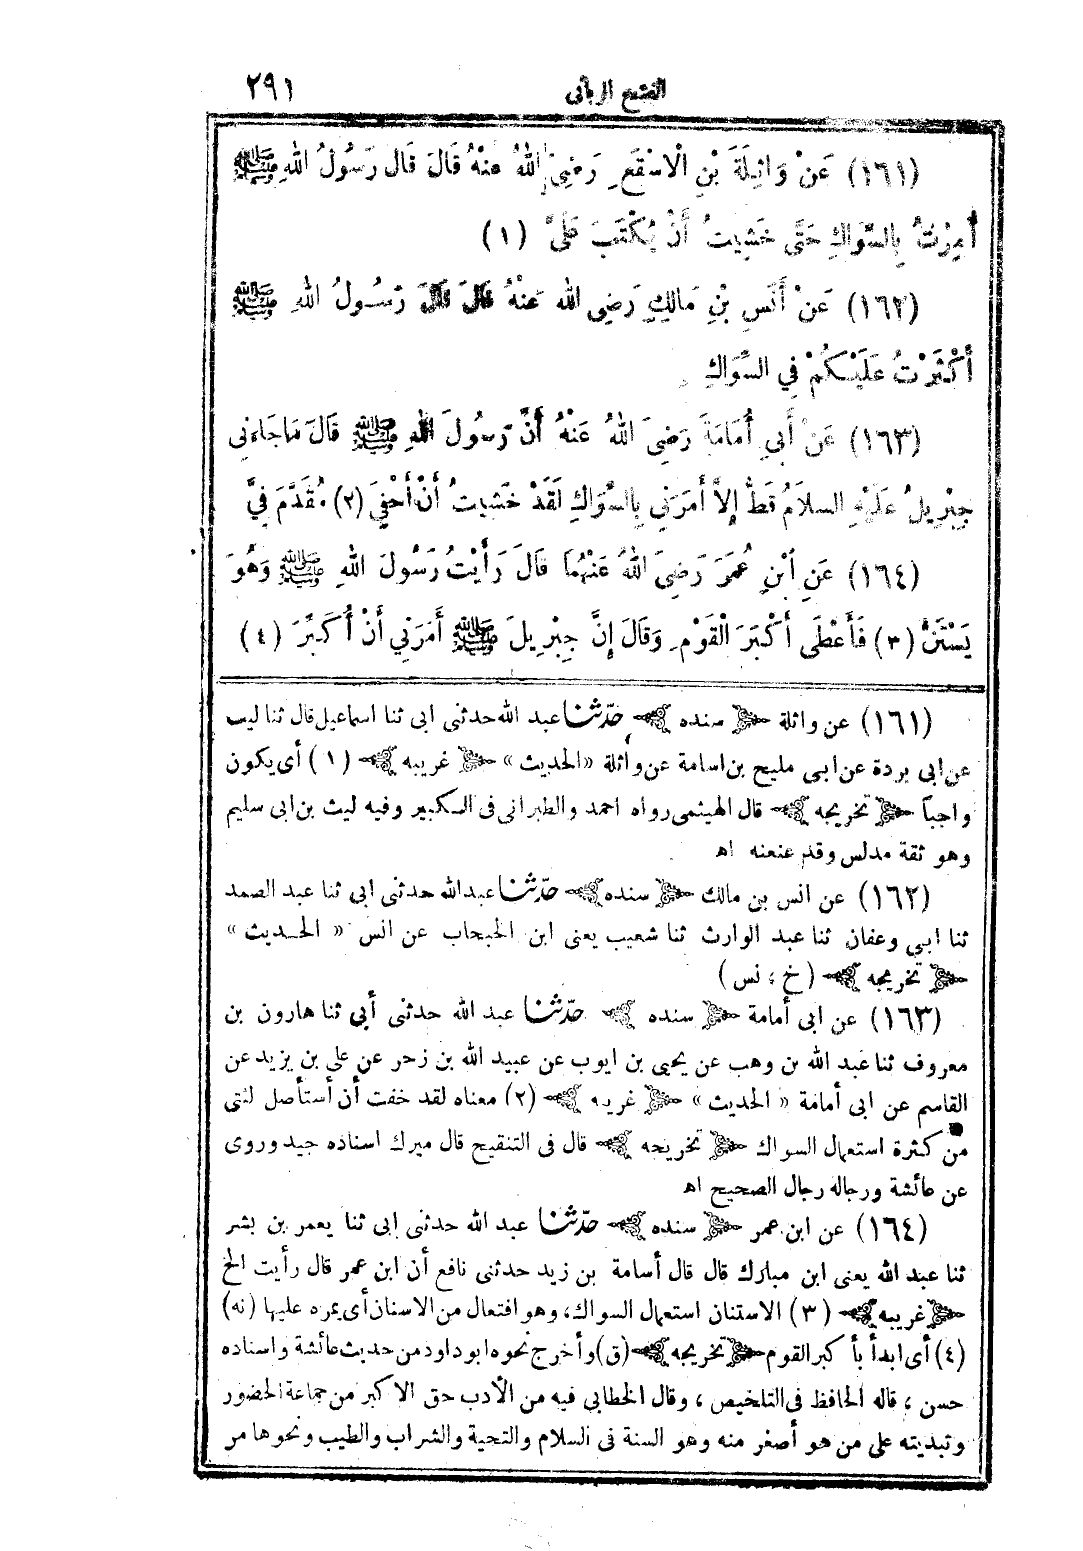 الفتح الربانى ٢٩١
(١٦١) عَنْ وَاثِلَةَ بْنِ الْأَسْقَعِ رَضِيَ اللهُ عَنْهُ قَالَ قَالَ رَسُولُ اللهِ ﷺ
أُمِرْتُ بِالسِّوَاكِ حَتَّى خَشِيتُ أَنْ يُكْتَبَ عَلَيَّ (١)
(١٦٢) عَنْ أَنَسِ بْنِ مَالِكٍ رَضِي الله عَنْهُ قَالَ قَالَ رَسُولُ اللهِ ﷺ
أَكْثَرْتُ عَلَيْكُمْ فِي السِّوَاكِ
(١٦٣) عَنْ أَبِي أُمَامَةَ رَضِيَ اللهُ عَنْهُ أَنَّ رَسُولَ اللهِ ﷺ قَالَ مَا جَاءَنِي
جِبْرِيلُ عَلَيْهِ السلَامُ قَطُّ إِلاَّ أَمَرَنِي بِالسِّوَاكِ لَقَدْ خَشِيتُ أَنْ أُحْفِيَ (٢) مُقَدَّمَ فِيَّ
(١٦٤) عَنِ ابْنِ عُمَرَ رَضِيَ اللهُ عَنْهُمَا قَالَ رَأَيْتُ رَسُولَ اللهِ ﷺ وَهُوَ
يَسْتَنُّ (٣) فَأَعْطَى أَكْبَرَ الْقَوْمِ وَقَالَ إِنَّ جِبْرِيلَ ﷺ أَمَرَنِي أَنْ أُكَبِّرَ (٤)
(١٦١) عن واثلة ﴿ سنده ﴾ حدّثنا عبد الله حدثنى ابى ثنا اسماعيل قال ثنا ليث
عن ابى بردة عن ابى مليح بن اسامة عن واثلة «الحديث» ﴿ غريبه ﴾ (١) أى يكون
واجباً ﴿ تخريجه ﴾ قال الهيثمى رواه احمد والطبرانى فى الكبير وفيه ليث بن ابى سليم
وهو ثقة مدلس وقد عنعنه اه
(١٦٢) عن انس بن مالك ﴿ سنده ﴾ حدّثنا عبد الله حدثنى ابى ثنا عبد الصمد
ثنا ابى وعفان ثنا عبد الوارث ثنا شعيب يعنى ابن الحبحاب عن انس «الحديث»
﴿ تخريجه ﴾ (خ ، نس)
(١٦٣) عن ابى أمامة ﴿ سنده ﴾ حدّثنا عبد الله حدثنى أبى ثنا هارون بن
معروف ثنا عبد الله بن وهب عن يحيى بن ايوب عن عبيد الله بن زحر عن على بن يزيد عن
القاسم عن ابى أمامة «الحديث» ﴿ غريبه ﴾ (٢) معناه لقد خفت أن أستأصل لثتى
من كثرة استعمال السواك ﴿ تخريجه ﴾ قال فى التنقيح قال ميرك اسناده جيد وروى
عن عائشة ورجاله رجال الصحيح اه
(١٦٤) عن ابن عمر ﴿ سنده ﴾ حدّثنا عبد الله حدثنى ابى ثنا يعمر بن بشر
ثنا عبد الله يعنى ابن مبارك قال قال أسامة بن زيد حدثنى نافع أن ابن عمر قال رأيت الخ
﴿ غريبه ﴾ (٣) الاستنان استعمال السواك، وهو افتعال من الاسنان أى يمره عليها (نه)
(٤) أى ابدأ بأكبر القوم ﴿ تخريجه ﴾ (ق) وأخرج نحوه ابو داود من حديث عائشة واسناده
حسن ، قاله الحافظ فى التلخيص ، وقال الخطابى فيه من الأدب حق الاكبر من جماعة الحضور
وتبديته على من هو أصغر منه وهو السنة فى السلام والتحية والشراب والطيب ونحوها من